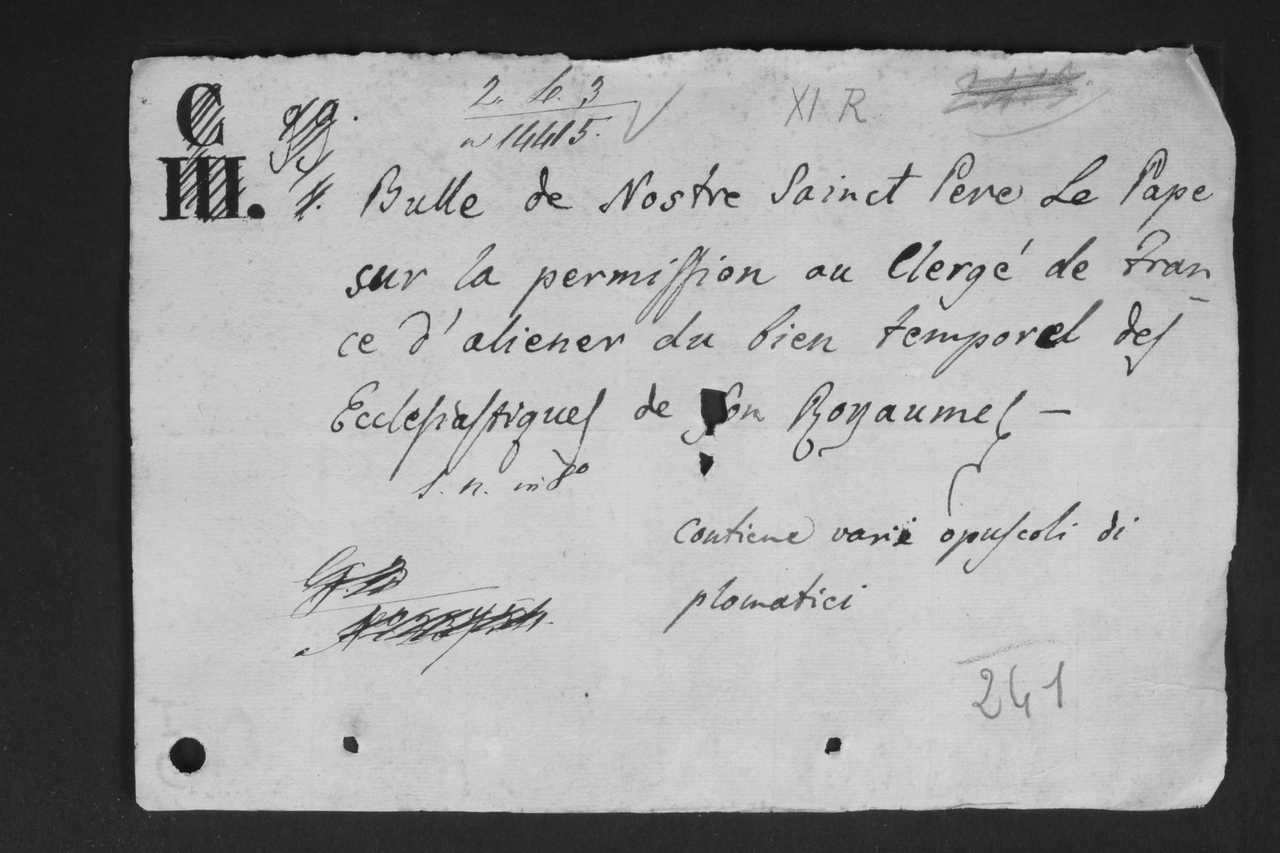 C
III.
gg.
4.
2. b. 3
n 14415.
XI R.
Bulle de Nostre Sainct Pere Le Pape
sur la permission au Clergé de Fran
ce d'aliener du bien temporel des
Ecclesiastiques de Son Royaumes —
s. n. in 8°
contiene varii opuscoli di
plomatici
241